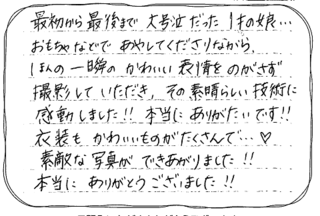 最初から最後まで大号泣だった1才の娘…
おもちゃなどで あやしてくださりながら、
ほんの一瞬の かわいい 表情を のがさず
撮影して いただき、その素晴らしい技術に
感動しました!! 本当に ありがたいです!!
衣装も かわいいものが たくさんで…♡
素敵な 写真が できあがりました!!
本当に ありがとうございました!!